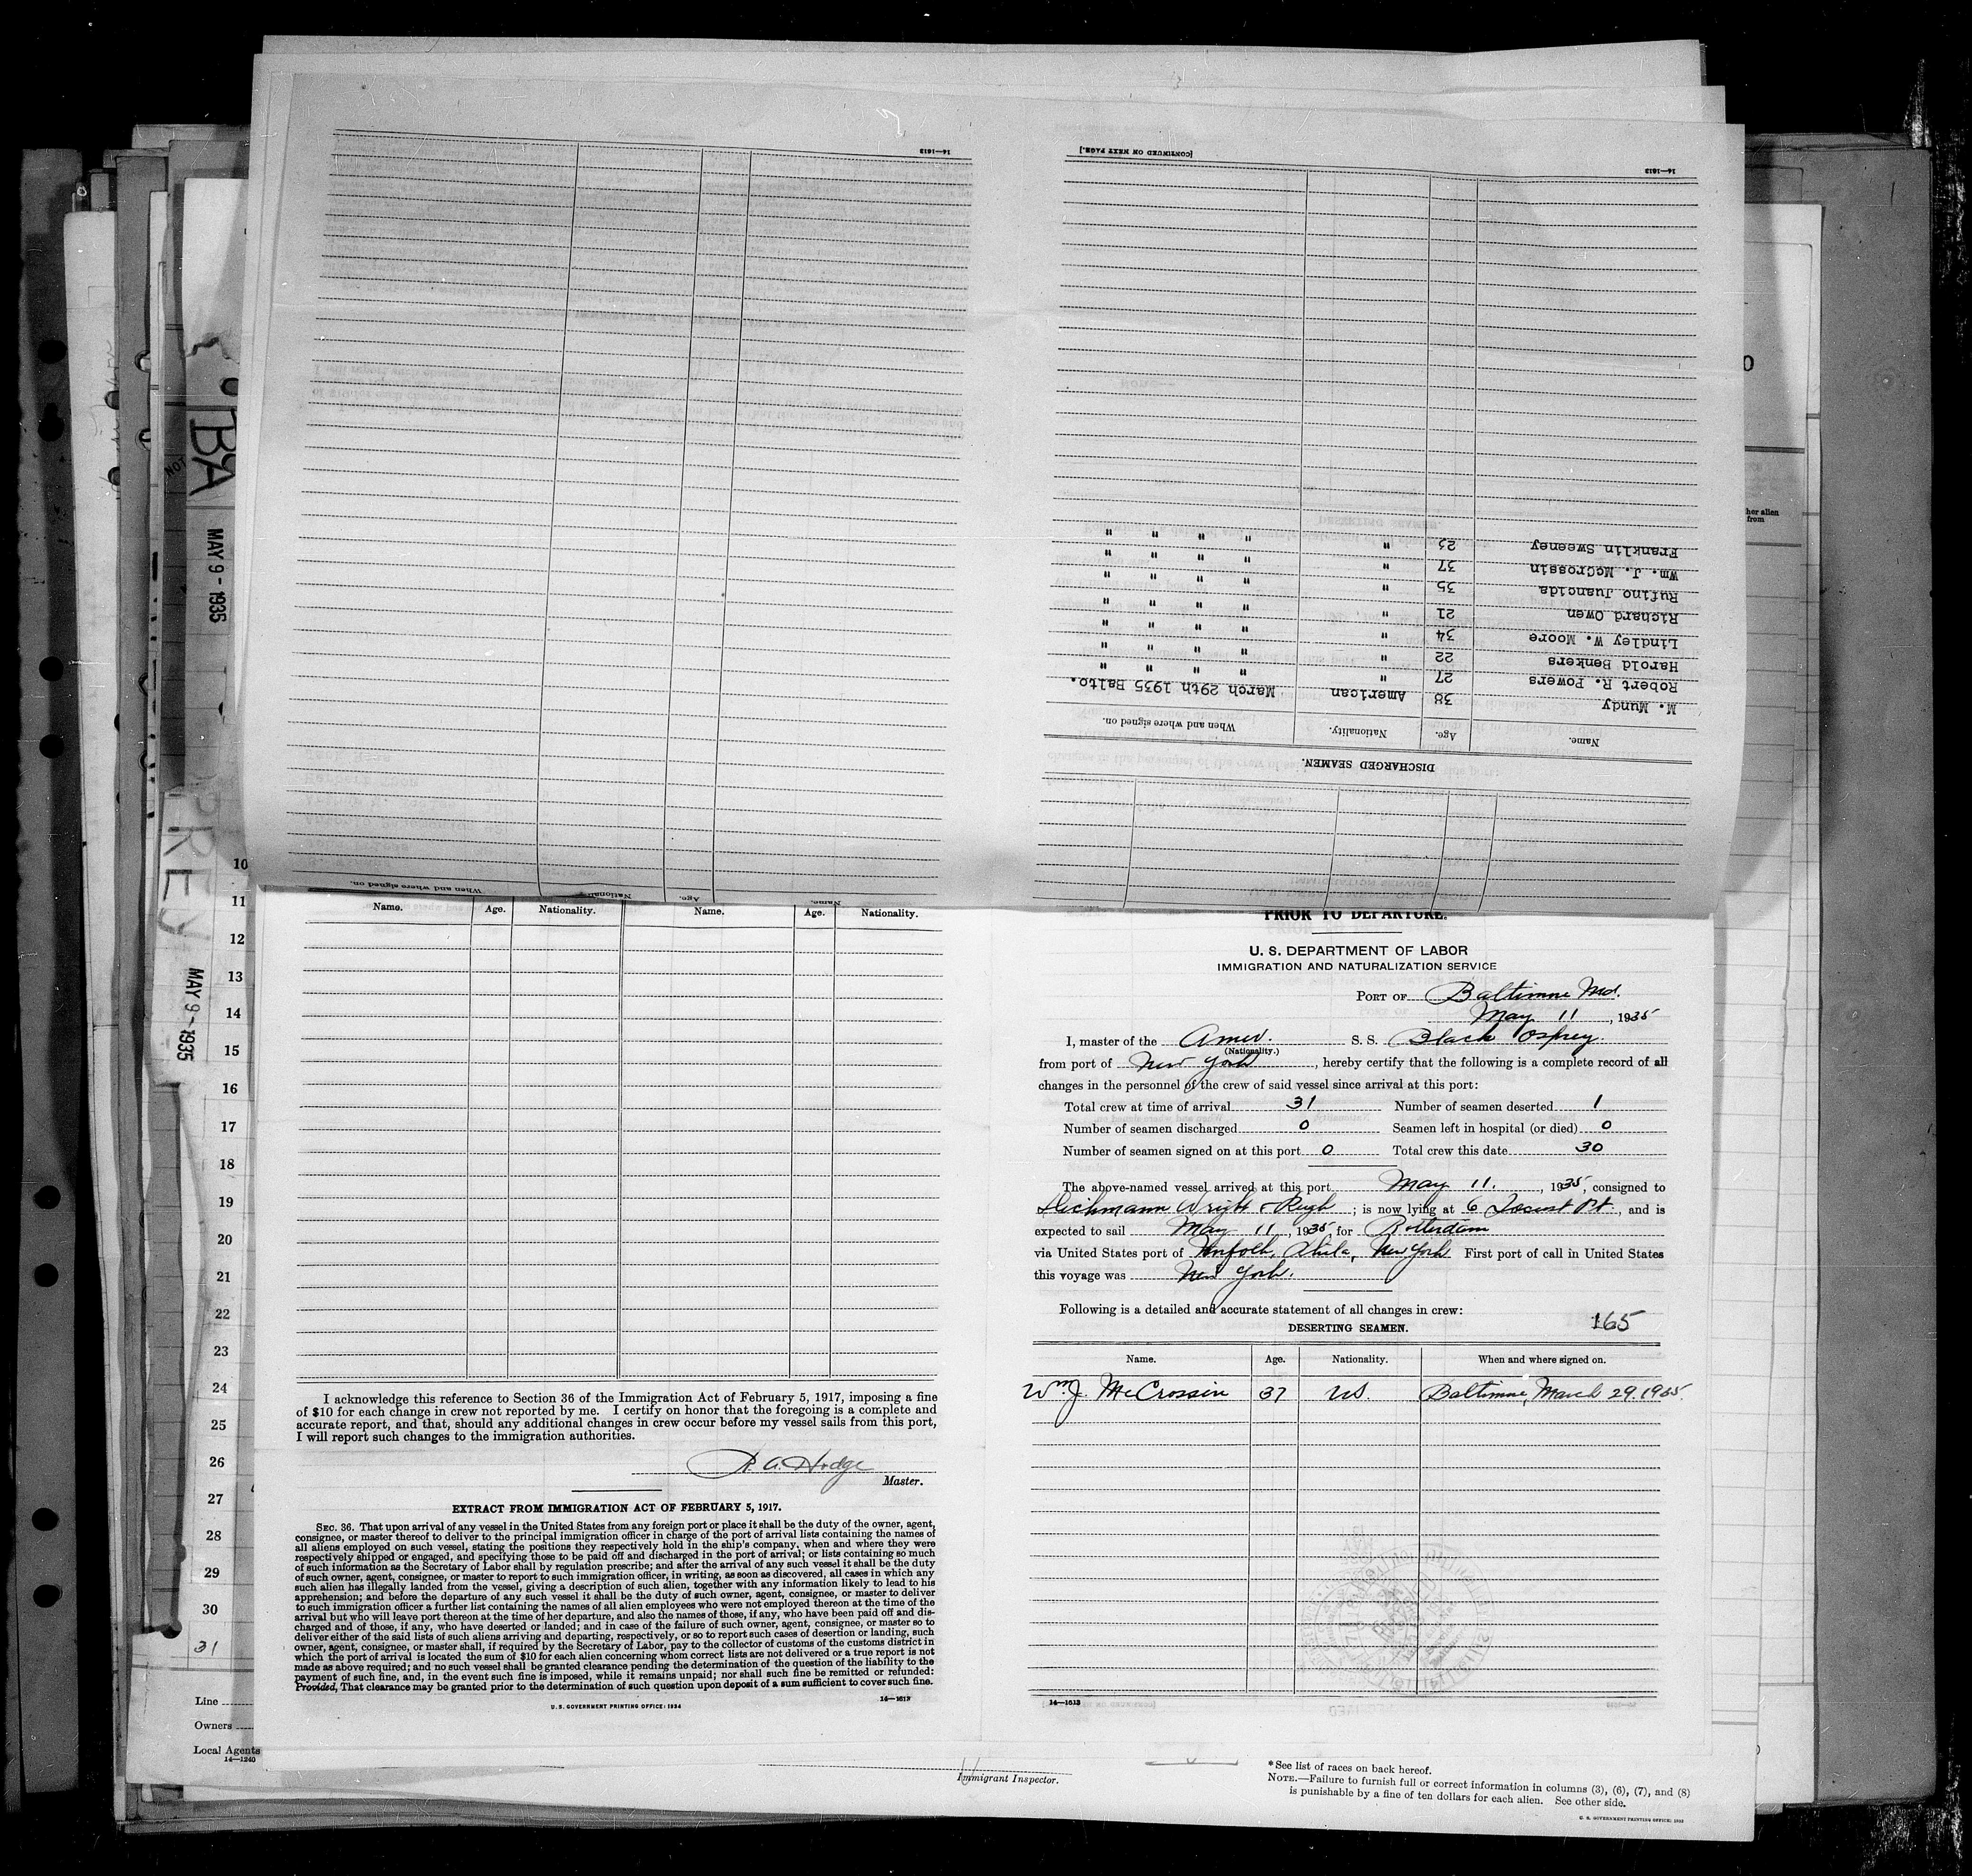 14—1613
[CONTINUED ON NEXT PAGE.]
14—1613
DISCHARGED SEAMEN.
Name. Age. Nationality. When and where signed on.
M. Mundy 38 American March 29th 1935 Balto.
Robert R. Powers 27 " " " " "
Harold Benkers 22 " " " " "
Lindley W. Moore 34 " " " " "
Richard Owen 21 " " " " "
Rufino Juancida 35 " " " " "
Wm. J. McCrossin 37 " " " " "
Franklin Sweeney 23 " " " " "
Name. Age. Nationality. When and where signed on.
BA
NOT
MAY 9 - 1935
PREV
MAY 9 - 1935
her alien
from
10
11
12
13
14
15
16
17
18
19
20
21
22
23
24
25
26
27
28
29
30
31
Line
Owners
Local Agents
14—1240
Name. Age. Nationality. Name. Age. Nationality.
I acknowledge this reference to Section 36 of the Immigration Act of February 5, 1917, imposing a fine
of $10 for each change in crew not reported by me. I certify on honor that the foregoing is a complete and
accurate report, and that, should any additional changes in crew occur before my vessel sails from this port,
I will report such changes to the immigration authorities.
R. A. Hodge
Master.
EXTRACT FROM IMMIGRATION ACT OF FEBRUARY 5, 1917.
SEC. 36. That upon arrival of any vessel in the United States from any foreign port or place it shall be the duty of the owner, agent,
consignee, or master thereof to deliver to the principal immigration officer in charge of the port of arrival lists containing the names of
all aliens employed on such vessel, stating the positions they respectively hold in the ship's company, when and where they were
respectively shipped or engaged, and specifying those to be paid off and discharged in the port of arrival; or lists containing so much
of such information as the Secretary of Labor shall by regulation prescribe; and after the arrival of any such vessel it shall be the duty
of such owner, agent, consignee, or master to report to such immigration officer, in writing, as soon as discovered, all cases in which any
such alien has illegally landed from the vessel, giving a description of such alien, together with any information likely to lead to his
apprehension; and before the departure of any such vessel it shall be the duty of such owner, agent, consignee, or master to deliver
to such immigration officer a further list containing the names of all alien employees who were not employed thereon at the time of the
arrival but who will leave port thereon at the time of her departure, and also the names of those, if any, who have been paid off and dis-
charged and of those, if any, who have deserted or landed; and in case of the failure of such owner, agent, consignee, or master so to
deliver either of the said lists of such aliens arriving and departing, respectively, or so to report such cases of desertion or landing, such
owner, agent, consignee, or master shall, if required by the Secretary of Labor, pay to the collector of customs of the customs district in
which the port of arrival is located the sum of $10 for each alien concerning whom correct lists are not delivered or a true report is not
made as above required; and no such vessel shall be granted clearance pending the determination of the question of the liability to the
payment of such fine, and, in the event such fine is imposed, while it remains unpaid; nor shall such fine be remitted or refunded:
Provided, That clearance may be granted prior to the determination of such question upon deposit of a sum sufficient to cover such fine.
U. S. GOVERNMENT PRINTING OFFICE: 1934 14—1613
PRIOR TO DEPARTURE.
U. S. DEPARTMENT OF LABOR
IMMIGRATION AND NATURALIZATION SERVICE
PORT OF Baltimore Md.
May 11, 1935
I, master of the Amer. S. S. Black Osprey.
(Nationality.)
from port of New York, hereby certify that the following is a complete record of all
changes in the personnel of the crew of said vessel since arrival at this port:
Total crew at time of arrival 31 Number of seamen deserted 1
Number of seamen discharged 0 Seamen left in hospital (or died) 0
Number of seamen signed on at this port 0 Total crew this date 30
The above-named vessel arrived at this port May 11., 1935, consigned to
Wright & ; is now lying at 6 Locust Pt., and is
expected to sail May 11, 1935 for Rotterdam
via United States port of Norfolk, Phila, New York First port of call in United States
this voyage was New York.
Following is a detailed and accurate statement of all changes in crew:
165
DESERTING SEAMEN.
Name. Age. Nationality. When and where signed on.
Wm. J. McCrossin 37 US. Baltimore, March 29. 1935.
14—1613
Immigrant Inspector.
* See list of races on back hereof.
NOTE.—Failure to furnish full or correct information in columns (3), (6), (7), and (8)
is punishable by a fine of ten dollars for each alien. See other side.
U. S. GOVERNMENT PRINTING OFFICE: 1933